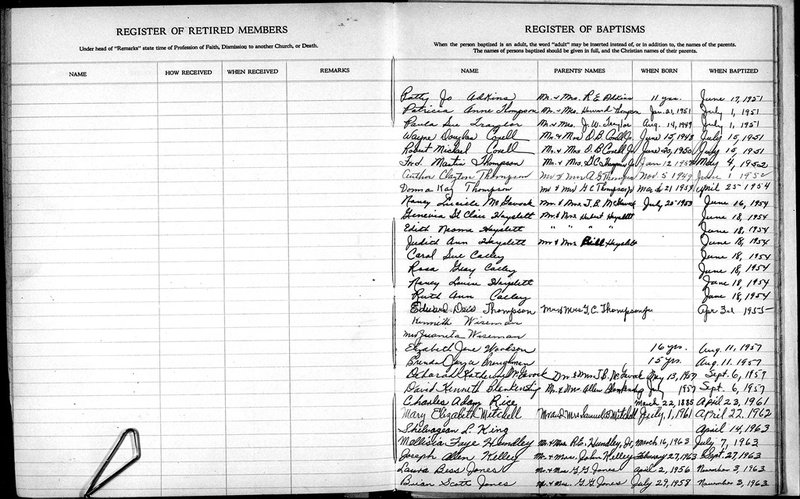 REGISTER OF RETIRED MEMBERS
Under head of "Remarks" state time of Profession of Faith, Dismission to another Church, or Death.
NAME HOW RECEIVED WHEN RECEIVED REMARKS
REGISTER OF BAPTISMS
When the person baptized is an adult, the word "adult" may be inserted instead of, or in addition to, the names of the parents.
The names of persons baptized should be given in full, and the Christian names of their parents.
NAME PARENTS' NAMES WHEN BORN WHEN BAPTIZED
Patty Jo Adkins Mr. & Mrs. R E Adkins 11 yrs. June 17, 1951
Patricia Anne Thompson Mr. & Mrs. Howard Thompson Jan. 21, 1951 July 1, 1951
Paula Sue Mr. & Mrs. J. W. Aug. 14, 1949 July 1, 1951
Wayne Douglas Conell Mr. & Mrs. O. B. Conell Jr June 15, 1948 July 15, 1951
Robert Michael Conell Mr. & Mrs. O. B. Conell Jr June 20, 1950 July 15, 1951
Martin Thompson Mr. & Mrs. Jan 12 May 4, 1952
Arthur Clayton Thompson Mr & Mrs A. G. Thompson Nov 5 1949 June 1 1952
Donna Kay Thompson Mr & Mrs G C Thompson Jr 21 April 25 1954
Nancy Lucile McGavock Mr & Mrs. J. B. McGavock July 20 1953 June 16, 1954
Geneviva St Clair Hazlett Mr. & Mrs Hubert Hazlett June 18, 1954
Edith Naoma Hazlett " " " " June 18, 1954
Judith Ann Hazlett Mr & Mrs Bill Hazlett June 18, 1954
Carol Sue Cacley June 18, 1954
Rosa Gray Cacley June 18, 1954
Nancy Louise Hazlett June 18, 1954
Ruth Ann Cacley June 18, 1954
Edward David Thompson Mr & Mrs G. C. Thompson Jr Apr 3rd 1955
Kenneth Wiseman
Mrs Juanita Wiseman
Elizabeth Jane Woodson 16 yrs. Aug. 11, 1957
Brenda 15 yrs. Aug. 11, 1957
Deborah Katherine McGavock Mr & Mrs J. B. McGavock 13, 1957 Sept. 6, 1957
David Kenneth Blankenship Mr. & Mrs Allen Blankenship 1957 Sept. 6, 1957
Charles Adam Rice March 22, 1885 April 23, 1961
Mary Elizabeth Mitchell Mr. and Mrs. Samuel B Mitchell July 1, 1961 April 22, 1962
L. King April 14, 1963
Mollicia Faye Hundley Mr. & Mrs. R. E. Hundley, Jr. March 16, 1963 July 7, 1963
Joseph Alan Kelley Mr. & Mrs. John Kelley February 27, 1963 Sept. 27, 1963
Laura Bess Jones Mr. & Mrs. G. G. Jones April 2, 1956 November 3, 1963
Brian Scott Jones Mr. & Mrs. G. G. Jones July 29, 1958 November 3, 1963